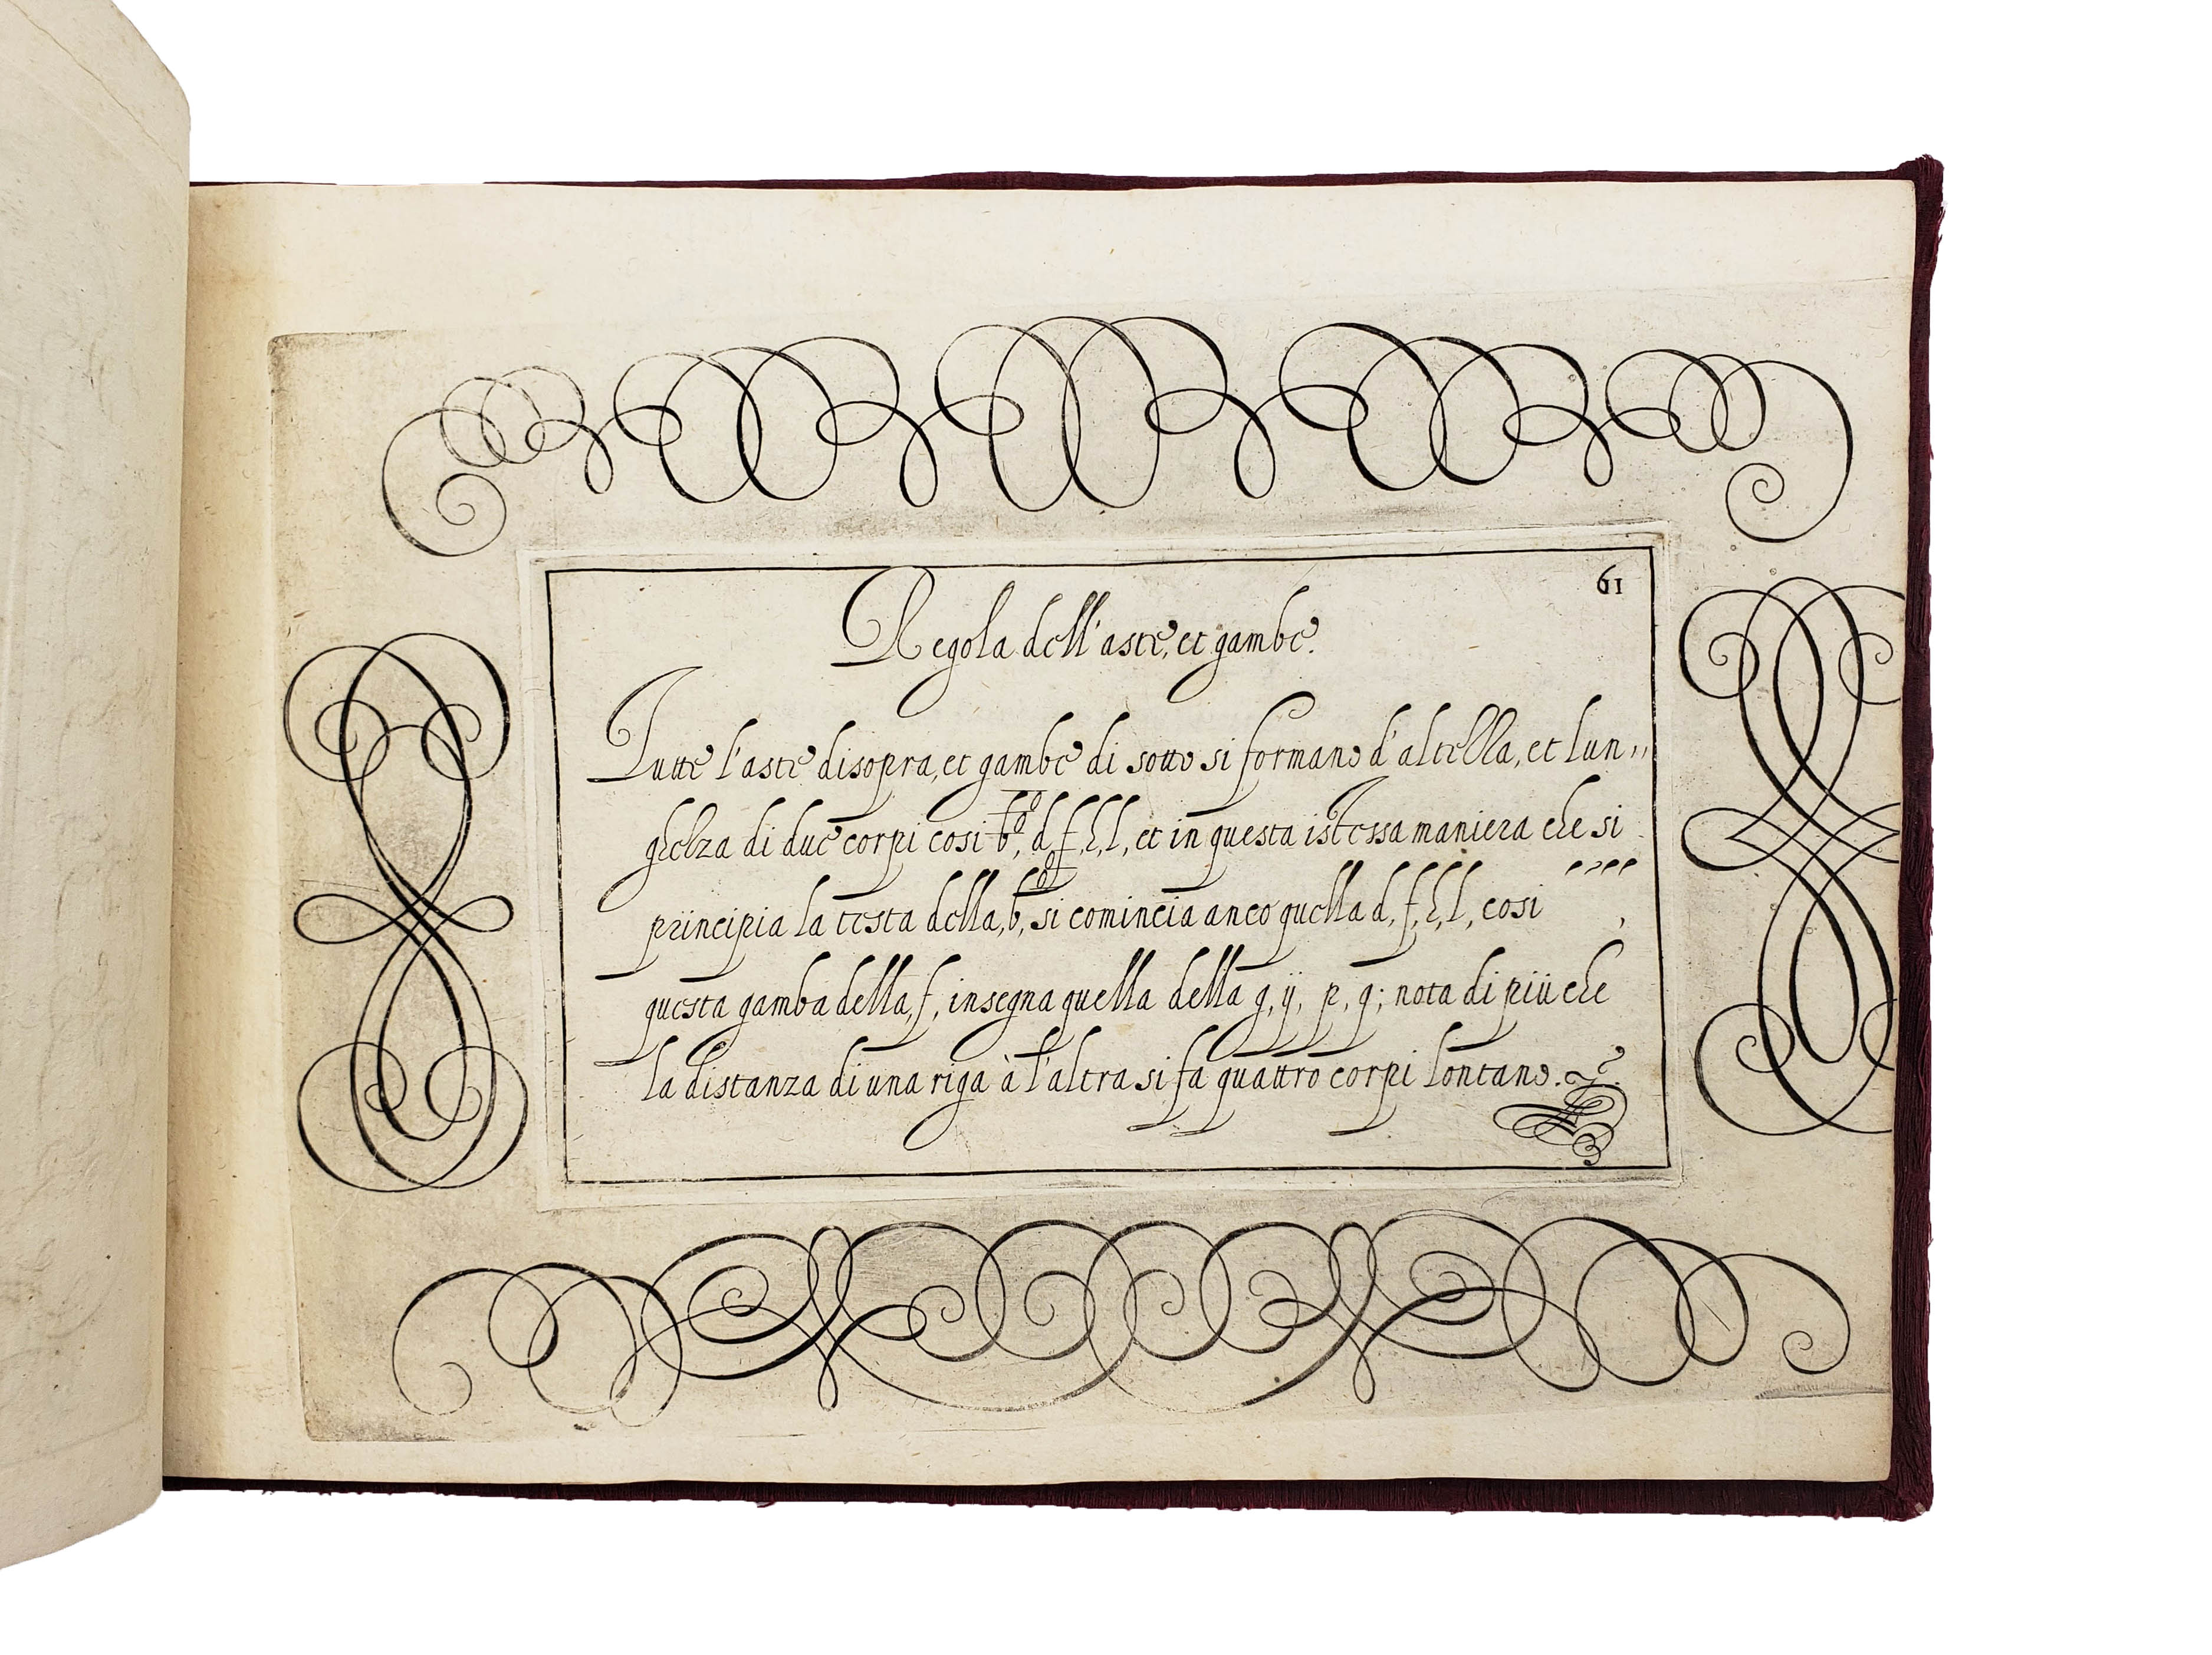 61
Regola dell'aste, et gambe.
Tutte l'aste disopra, et gambe di sotto si formano d'altezza, et lun„
ghezza di due corpi cosi b, d, f, h, l, et in questa istessa maniera che si
principia la testa della, b, si comincia anco quella d, f, h, l, cosi
questa gamba della, f, insegna quella della g, ÿ, p, q; nota di più che
la distanza di una riga à l'altra si fa quattro corpi lontano.